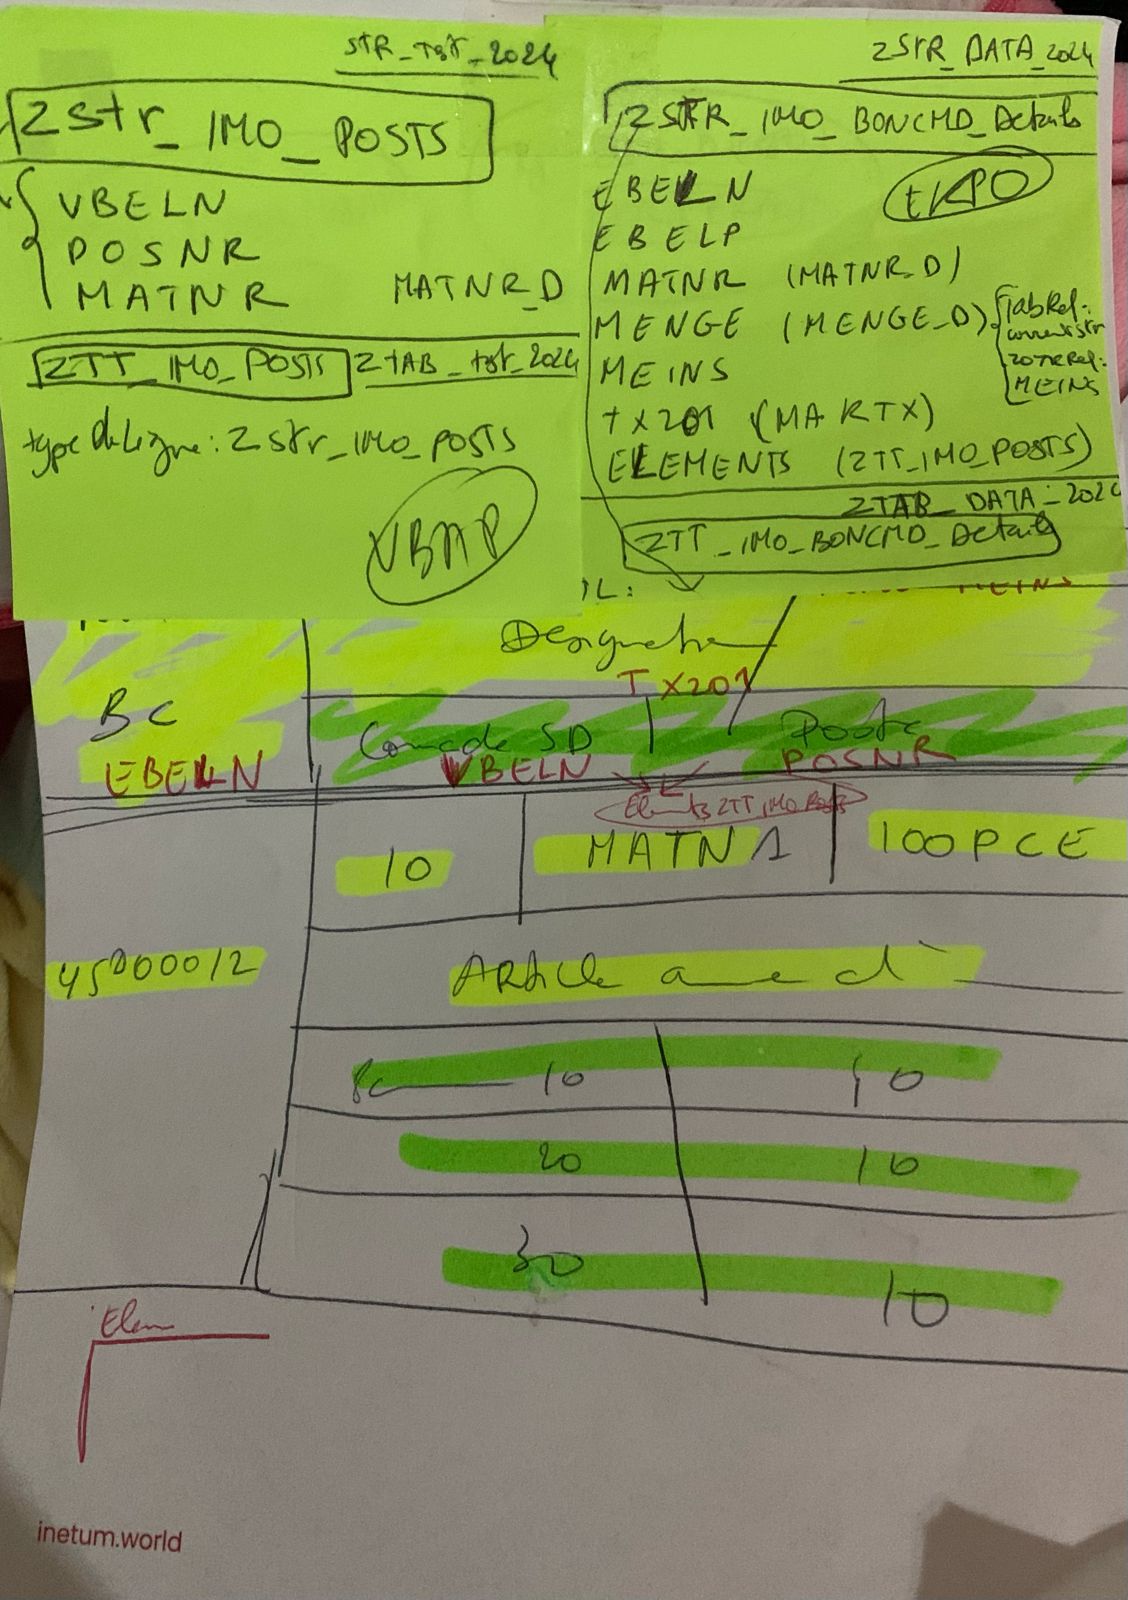 STR_Tst_2024
Zstr_IMO_POSTS
VBELN
POSNR
MATNR MATNR_D
ZTT_IMO_POSTS ZTAB_tst_2024
type de ligne : Zstr_IMO_POSTS
VBAP
ZSTR_DATA_2024
ZSTR_IMO_BONCMD_Details
EBELN EKPO
EBELP
MATNR (MATNR_D)
MENGE (MENGE_D) TabRef:
zoneRef:
MEINS
MEINS
TX201 (MAKTX)
ELEMENTS (ZTT_IMO_POSTS)
ZTAB_DATA_2024
ZTT_IMO_BONCMD_Details
L:
MEINS
Designation
TX201
BC
EBELN
Comande SD Poste
VBELN POSNR
Elements ZTT_IMO_Posts
10 MATN1 100PCE
45000012
Article
10 10
20 10
30 10
Elem
inetum.world